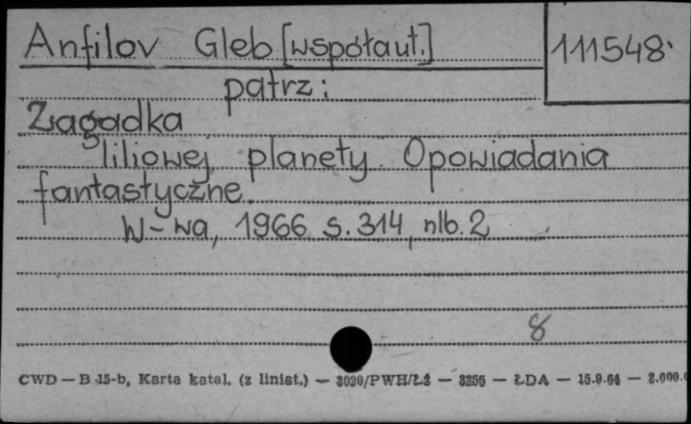 Anfilov Gleb [współaut.] 111548
patrz:
Zagadka
liliowej planety. Opowiadania
fantastyczne.
W-wa, 1966 s. 314, nlb. 2
8
CWD — B-15-b, Karta katal. (z liniat.) — 3030/PWH/Ł1 — 3255 — ŁDA — 15.9.64 — 2.000.